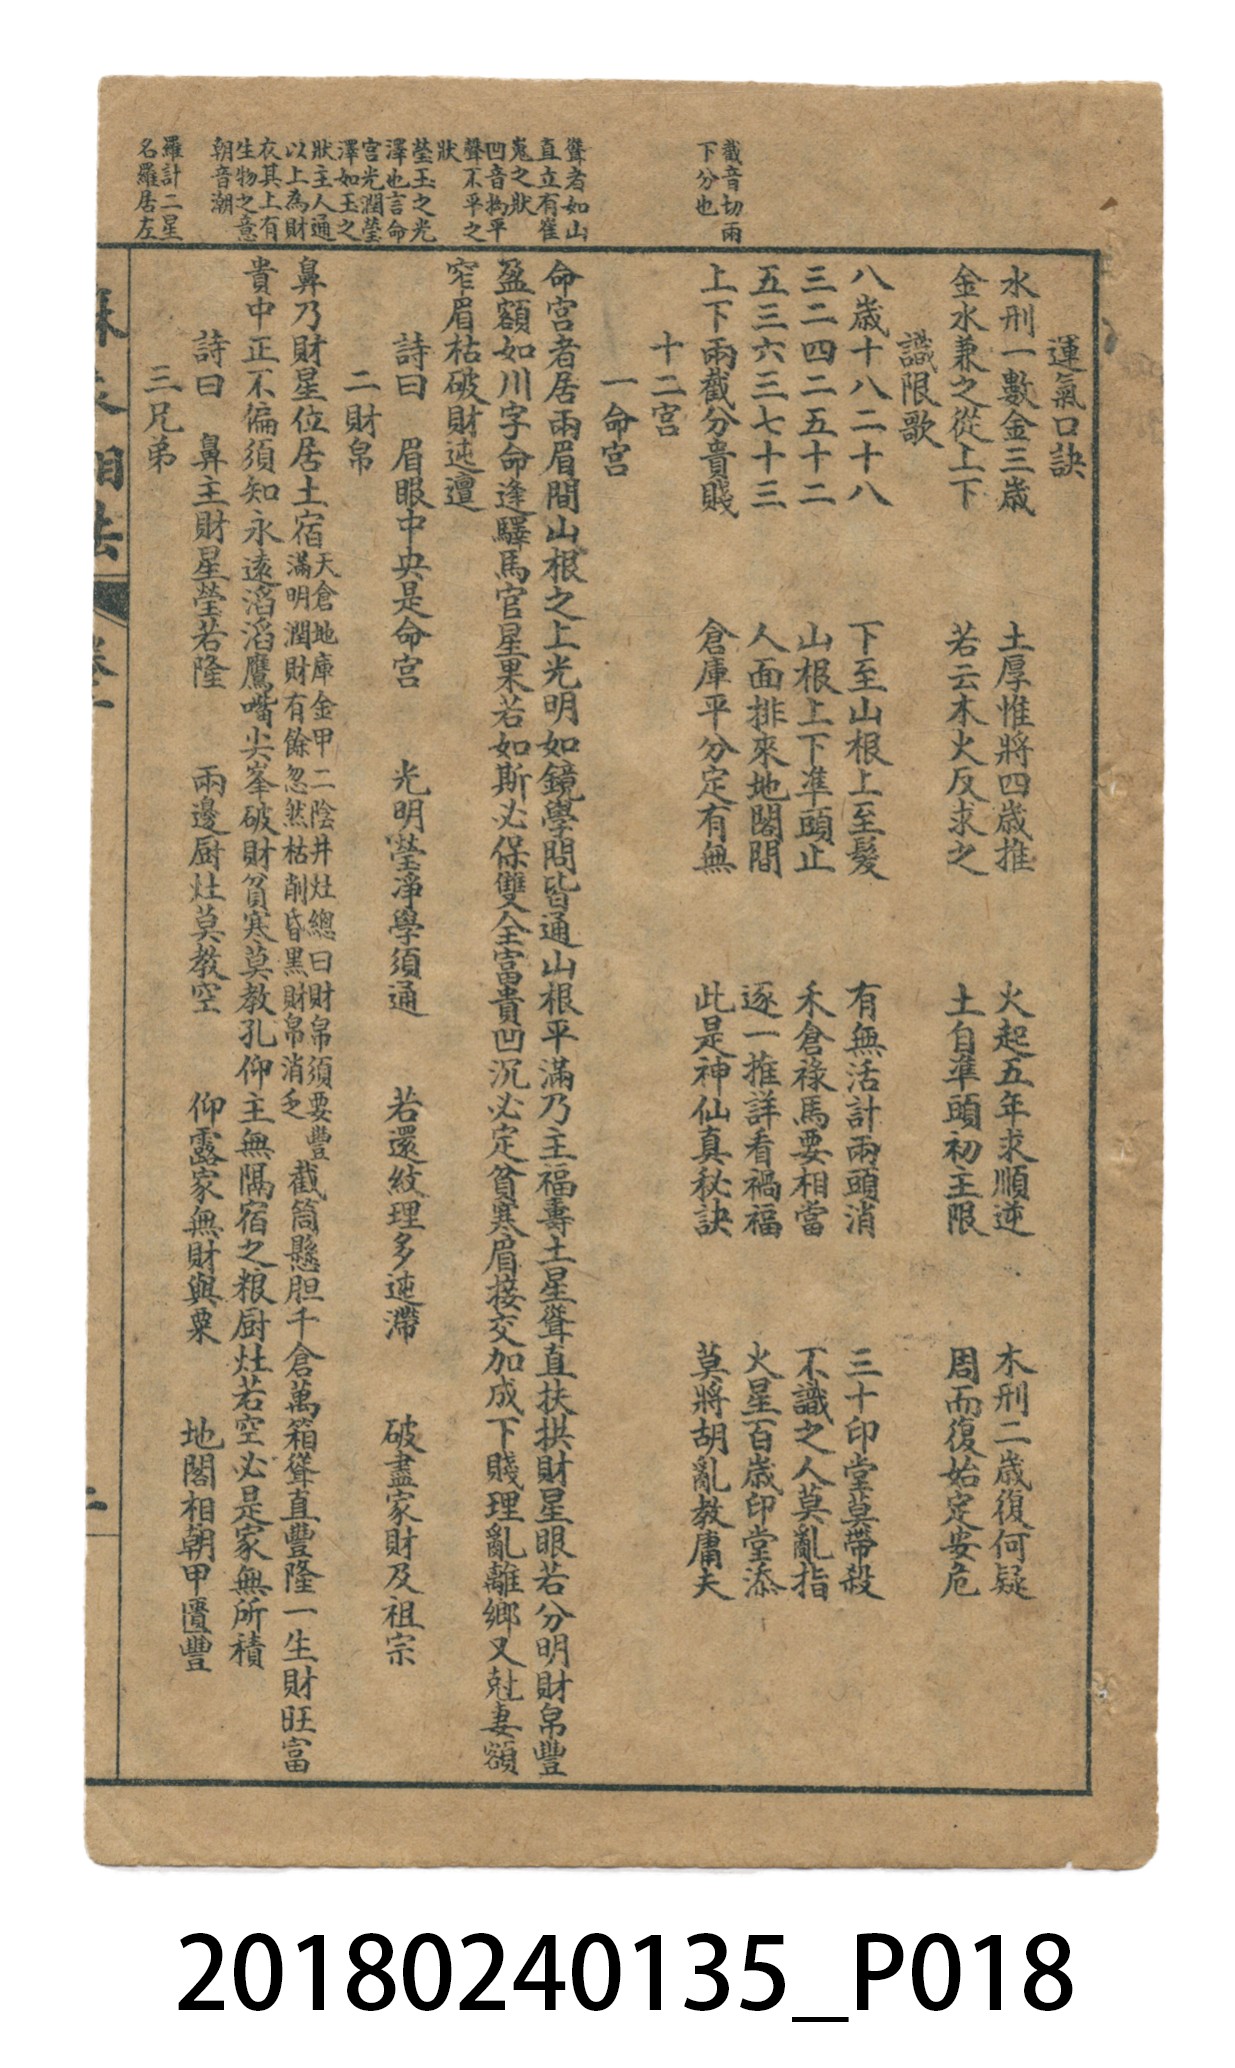 截音切兩
下分也
聳者如山
直立有崔
嵬之狀
凹音拗平
聲不平之
狀
瑩玉之光
澤也言命
宮光潤瑩
澤如玉之
狀主人通
以上為財
衣其上有
生物之意
朝音潮
羅計二星
名羅居左
運氣口訣
水刑一數金三歲 土厚惟將四歲推 火起五年求順逆 木刑二歲復何疑
金水兼之從上下 若云木火反求之 土自準頭初主限 周而復始定安危
識限歌
八歲十八二十八 下至山根上至髮 有無活計兩頭消 三十印堂莫帶殺
三二四二五十二 山根上下準頭止 禾倉祿馬要相當 不識之人莫亂指
五三六三七十三 人面排來地閣間 逐一推詳看禍福 火星百歲印堂添
上下兩截分貴賤 倉庫平分定有無 此是神仙真秘訣 莫將胡亂教庸夫
十二宮
一命宮
命宮者居兩眉間山根之上光明如鏡學問皆通山根平滿乃主福壽土星聳直扶拱財星眼若分明財帛豐
盈額如川字命逢驛馬官星果若如斯必保雙全富貴凹沉必定貧寒眉接交加成下賤理亂離鄉又尅妻額
窄眉枯破財迍邅
詩曰 眉眼中央是命宮 光明瑩淨學須通 若還紋理多迍滯 破盡家財及祖宗
二財帛
鼻乃財星位居土宿天倉地庫金甲二陰井灶總曰財帛須要豐滿明潤財有餘忽然枯削昏黑財帛消乏截筒懸胆千倉萬箱聳直豐隆一生財旺富
貴中正不偏須知永遠滔滔鷹嘴尖峯破財貧寒莫教孔仰主無隔宿之粮厨灶若空必是家無所積
詩曰 鼻主財星瑩若隆 兩邊厨灶莫教空 仰露家無財與粟 地閣相朝甲匱豐
三兄弟
20180240135_P018